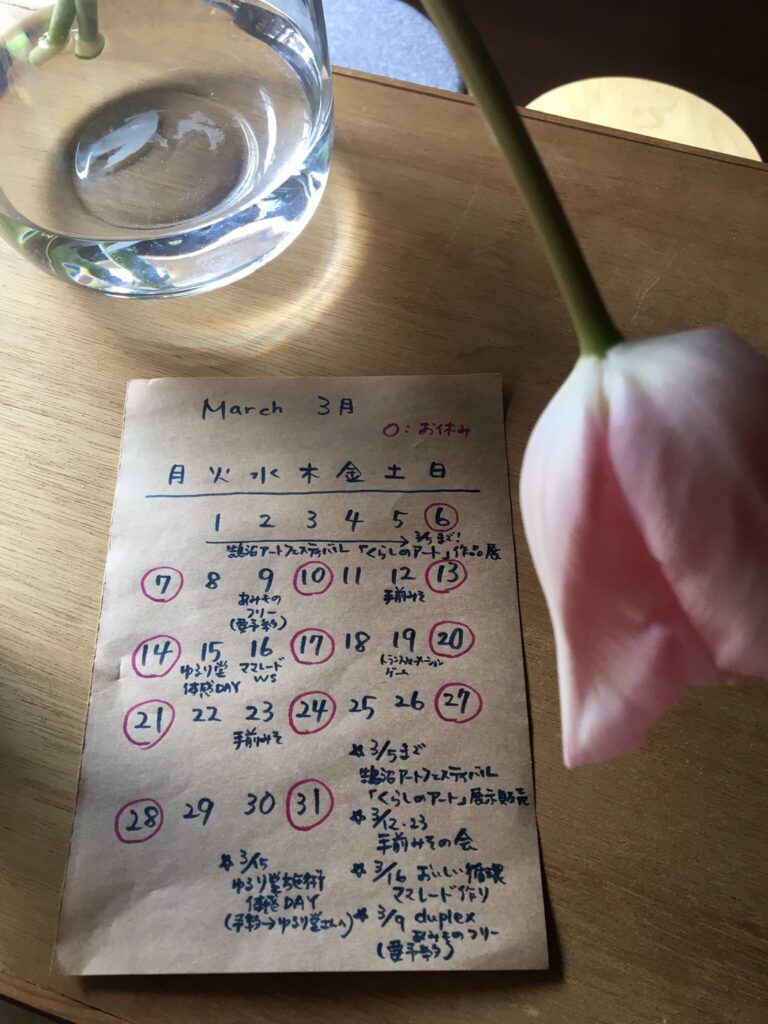 March 3月
○:お休み
月 火 水 木 金 土 日
1 2 3 4 5 6
3/5まで!
鵠沼アートフェスティバル「くらしのアート」作品展
7 8 9 10 11 12 13
あみもの
フリー
(要予約)
手前みそ
14 15 16 17 18 19 20
ゆるり堂
体感DAY
ママレード
WS
トランスフォーメーション
ゲーム
21 22 23 24 25 26 27
手前みそ
28 29 30 31
☆3/5まで
鵠沼アートフェスティバル
「くらしのアート」展示販売
☆3/12・23
手前みその会
☆3/16 おいしい循環
ママレード作り
☆3/9 duplex
あみものフリー
(要予約)
☆3/15
ゆるり堂施術
体感DAY
(予約→ゆるり堂さんへ)